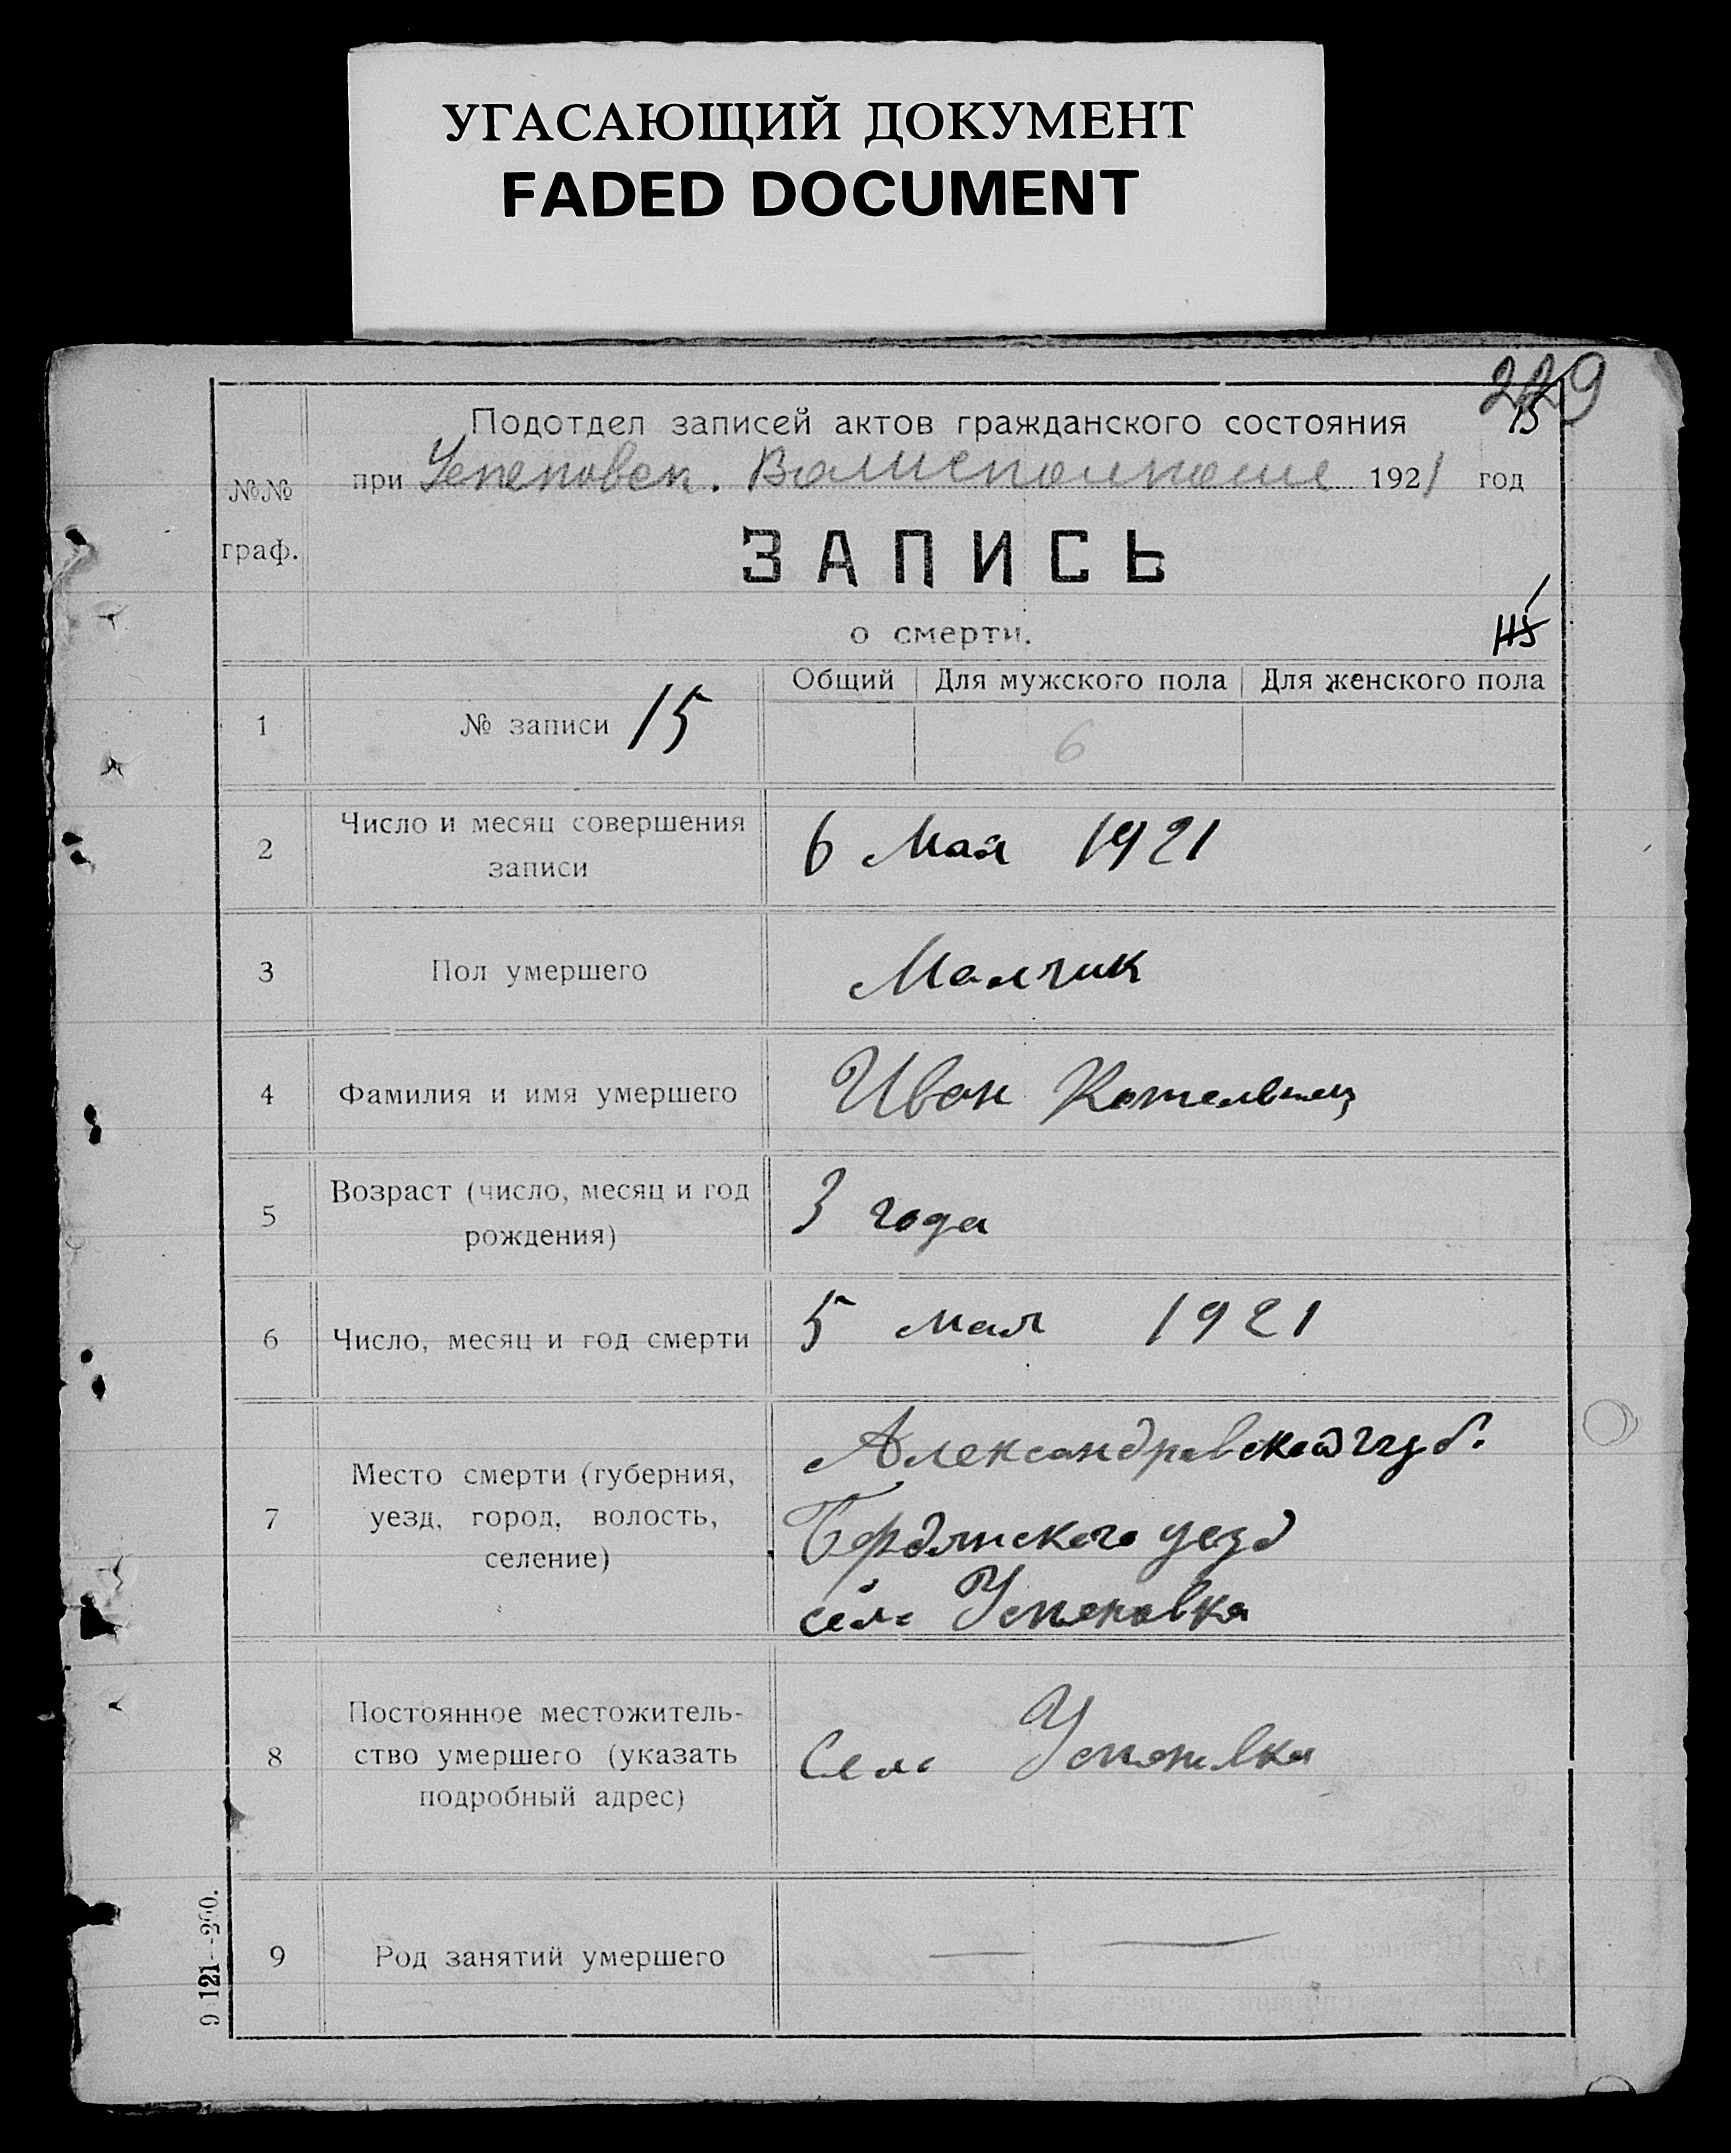 УГАСАЮЩИЙ ДОКУМЕНТ
FADED DOCUMENT
229
Подотдел записей актов гражданского состояния 15
№№ при Успеновск. Волисполкоме 1921 год
граф.
ЗАПИСЬ
о смерти. 115
Общий Для мужского пола Для женского пола
1 № записи 15 6
2 Число и месяц совершения записи
6 Мая 1921
3 Пол умершего
Малчик
4 Фамилия и имя умершего
Иван
5 Возраст (число, месяц и год рождения)
3 года
6 Число, месяц и год смерти
5 мая 1921
7 Место смерти (губерния, уезд, город, волость, селение)
Александровской губ.
Бердянского уезд
село Успеновка
8 Постоянное местожитель-
ство умершего (указать
подробный адрес)
Село Успеновка
9 Род занятий умершего
— —